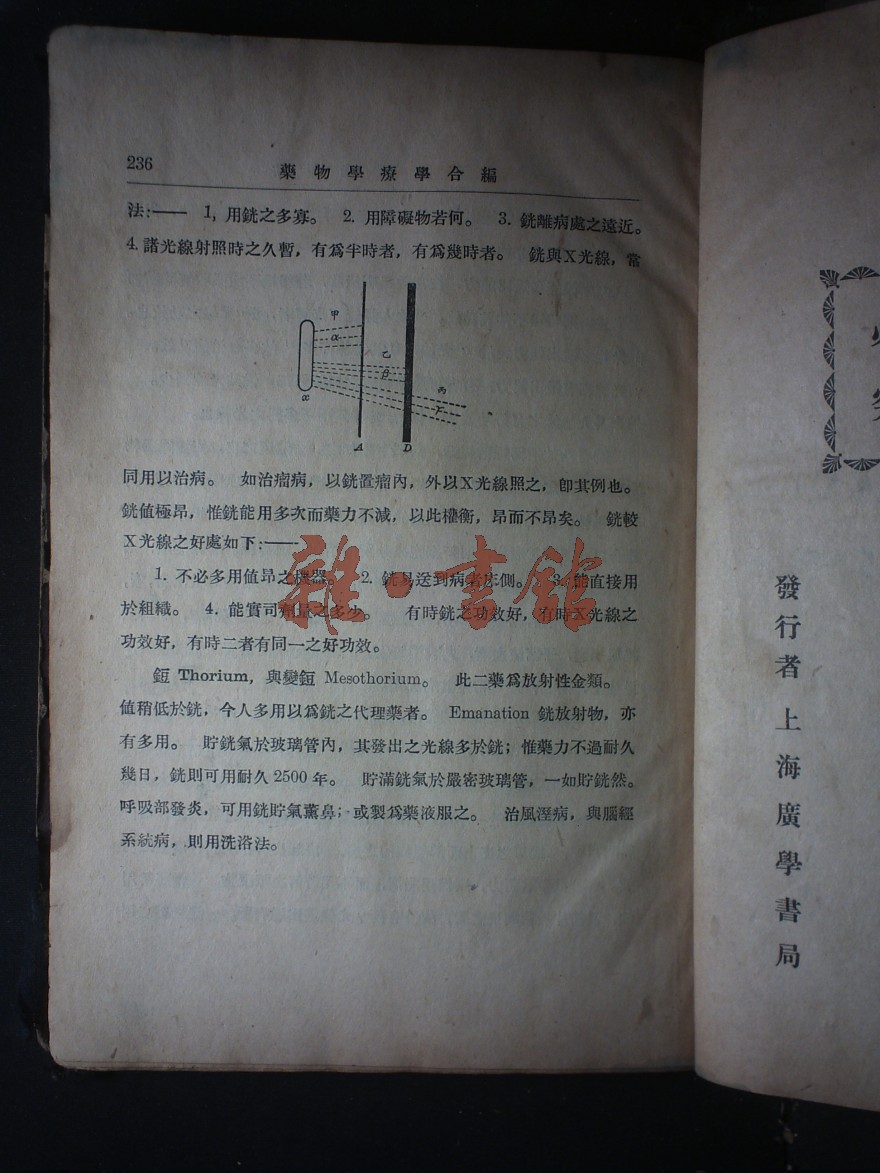 236
藥物學療學合編
法:—— 1, 用銧之多寡。 2. 用障礙物若何。 3. 銧離病處之遠近。
4. 諸光線射照時之久暫，有爲半時者，有爲幾時者。 銧與X光線，常
甲
α
乙
β
丙
γ
x
A D
同用以治病。 如治瘤病，以銧置瘤內，外以X光線照之，卽其例也。
銧値極昂，惟銧能用多次而藥力不減，以此權衡，昂而不昂矣。 銧較
X光線之好處如下:——
1. 不必多用値昂之機器。 2. 銧易送到病者床側。 3. 能直接用
於組織。 4. 能實司劑量之多少。 有時銧之功效好，有時X光線之
功效好，有時二者有同一之好功效。
鋀 Thorium, 與變鋀 Mesothorium。 此二藥爲放射性金類。
値稍低於銧，今人多用以爲銧之代理藥者。 Emanation 銧放射物，亦
有多用。 貯銧氣於玻璃管內，其發出之光線多於銧；惟藥力不過耐久
幾日，銧則可用耐久2500年。 貯滿銧氣於嚴密玻璃管，一如貯銧然。
呼吸部發炎，可用銧貯氣薰鼻；或製爲藥液服之。 治風溼病，與腦經
系統病，則用洗浴法。
雜·書館
發行者 上海廣學書局